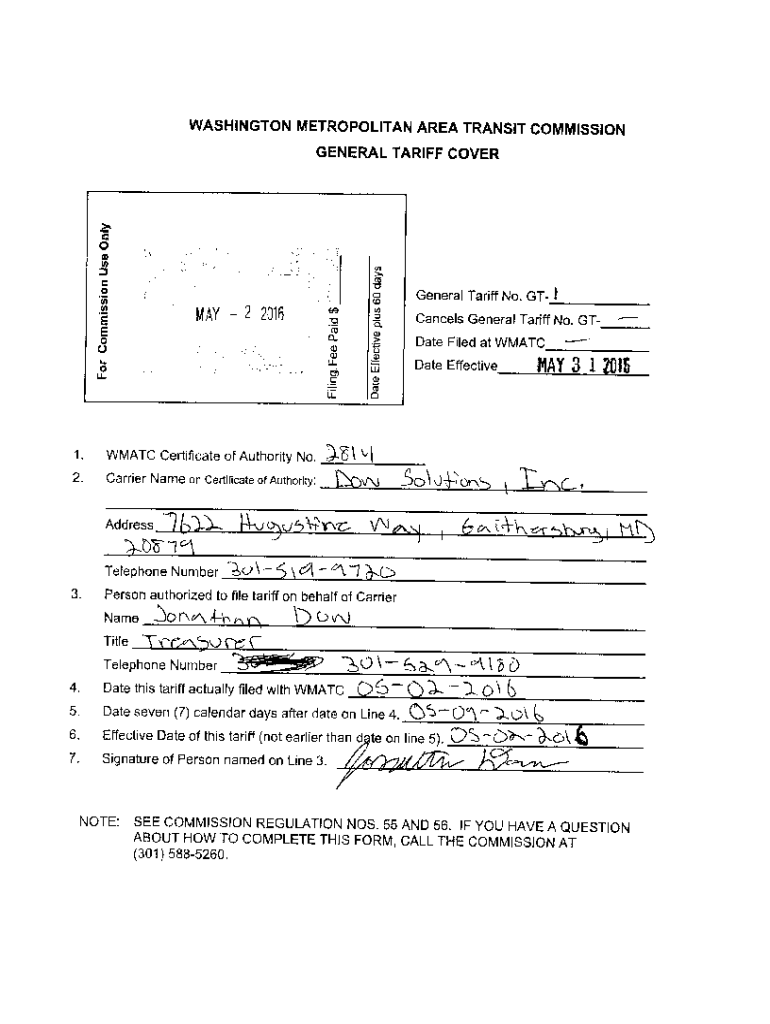 WASHINGTON METROPOLITAN AREA TRANSIT COMMISSION
GENERAL TARIFF COVER
For Commission Use Only
MAY - 2 2016
Filing Fee Paid $
Date Effective plus 60 days
General Tariff No. GT- 1
Cancels General Tariff No. GT- —
Date Filed at WMATC —
Date Effective MAY 31 2016
1. WMATC Certificate of Authority No. 2814
2. Carrier Name or Certificate of Authority: Dow Solutions, Inc.
Address 7622 Augustine Way, Gaithersburg, MD
20879
Telephone Number 301-519-9720
3. Person authorized to file tariff on behalf of Carrier
Name Jonathan Dow
Title Treasurer
Telephone Number 301-529-9180
4. Date this tariff actually filed with WMATC 05-02-2016
5. Date seven (7) calendar days after date on Line 4. 05-09-2016
6. Effective Date of this tariff (not earlier than date on line 5). 05-02-2016
7. Signature of Person named on Line 3. Jonathan Dow
NOTE: SEE COMMISSION REGULATION NOS. 55 AND 56. IF YOU HAVE A QUESTION
ABOUT HOW TO COMPLETE THIS FORM, CALL THE COMMISSION AT
(301) 588-5260.